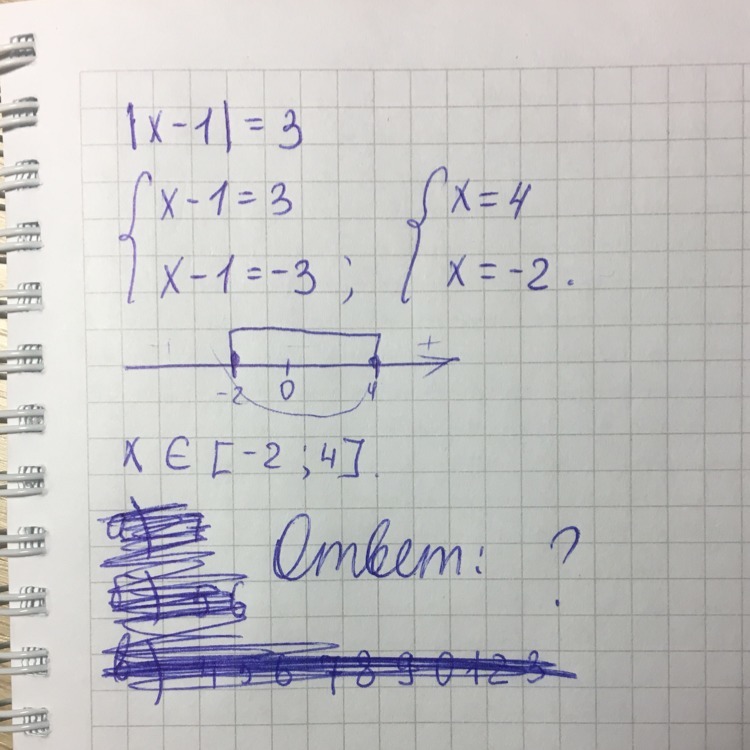 |x-1| = 3
x-1=3
x-1=-3;
x=4
x=-2.
+
-2 0 4
x ∈ [-2;4].
Ответ: ?